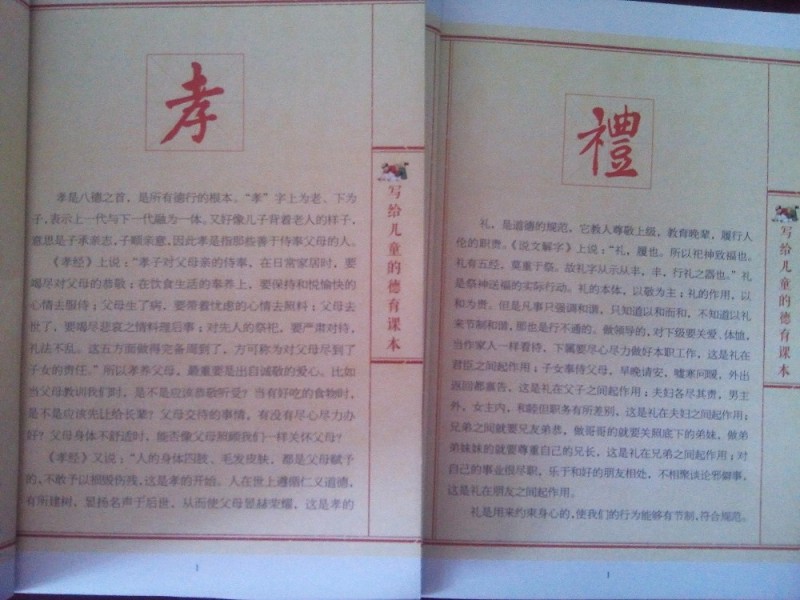 孝
孝是八德之首，是所有德行的根本。“孝”字上为老、下为
子，表示上一代与下一代融为一体。又好像儿子背着老人的样子，
意思是子承亲志，子顺亲意，因此孝是指那些善于侍奉父母的人。
《孝经》上说：“孝子对父母亲的侍奉，在日常家居时，要
竭尽对父母的恭敬；在饮食生活的奉养上，要保持和悦愉快的
心情去服侍；父母生了病，要带着忧虑的心情去照料；父母去
世了，要竭尽悲哀之情料理后事；对先人的祭祀，要严肃对待，
礼法不乱。这五方面做得完备周到了，方可称为对父母尽到了
子女的责任。”所以孝养父母，最重要是出自诚敬的爱心。比如
当父母教训我们时，是不是应该恭敬听受？当有好吃的食物时，
是不是应该先让给长辈？父母交待的事情，有没有尽心尽力办
好？父母身体不舒适时，能否像父母照顾我们一样关怀父母？
《孝经》又说：“人的身体四肢、毛发皮肤，都是父母赋予
的，不敢予以损毁伤残，这是孝的开始。人在世上遵循仁义道德，
有所建树，显扬名声于后世，从而使父母显赫荣耀，这是孝的
写给儿童的德育课本
1
禮
礼，是道德的规范，它教人尊敬上级，教育晚辈，履行人
伦的职责。《说文解字》上说：“礼，履也。所以祀神致福也。
礼有五经，莫重于祭。故礼字从示从丰，丰，行礼之器也。”礼
是祭神送福的实际行动。礼的本体，以敬为主；礼的作用，以
和为贵。但是凡事只强调和谐，只知道以和而和，不知道以礼
来节制和谐，那也是行不通的。做领导的，对下级要关爱、体恤，
当作家人一样看待，下属要尽心尽力做好本职工作，这是礼在
君臣之间起作用；子女奉侍父母，早晚请安，嘘寒问暖，外出
返回都禀告，这是礼在父子之间起作用；夫妇各尽其责，男主
外，女主内，和睦但职务有所差别，这是礼在夫妇之间起作用；
兄弟之间就要兄友弟恭，做哥哥的就要关照底下的弟妹，做弟
弟妹妹的就要尊重自己的兄长，这是礼在兄弟之间起作用；对
自己的事业很尽职，乐于和好的朋友相处，不相聚谈论邪僻事，
这是礼在朋友之间起作用。
礼是用来约束身心的，使我们的行为能够有节制，符合规范。
写给儿童的德育课本
1